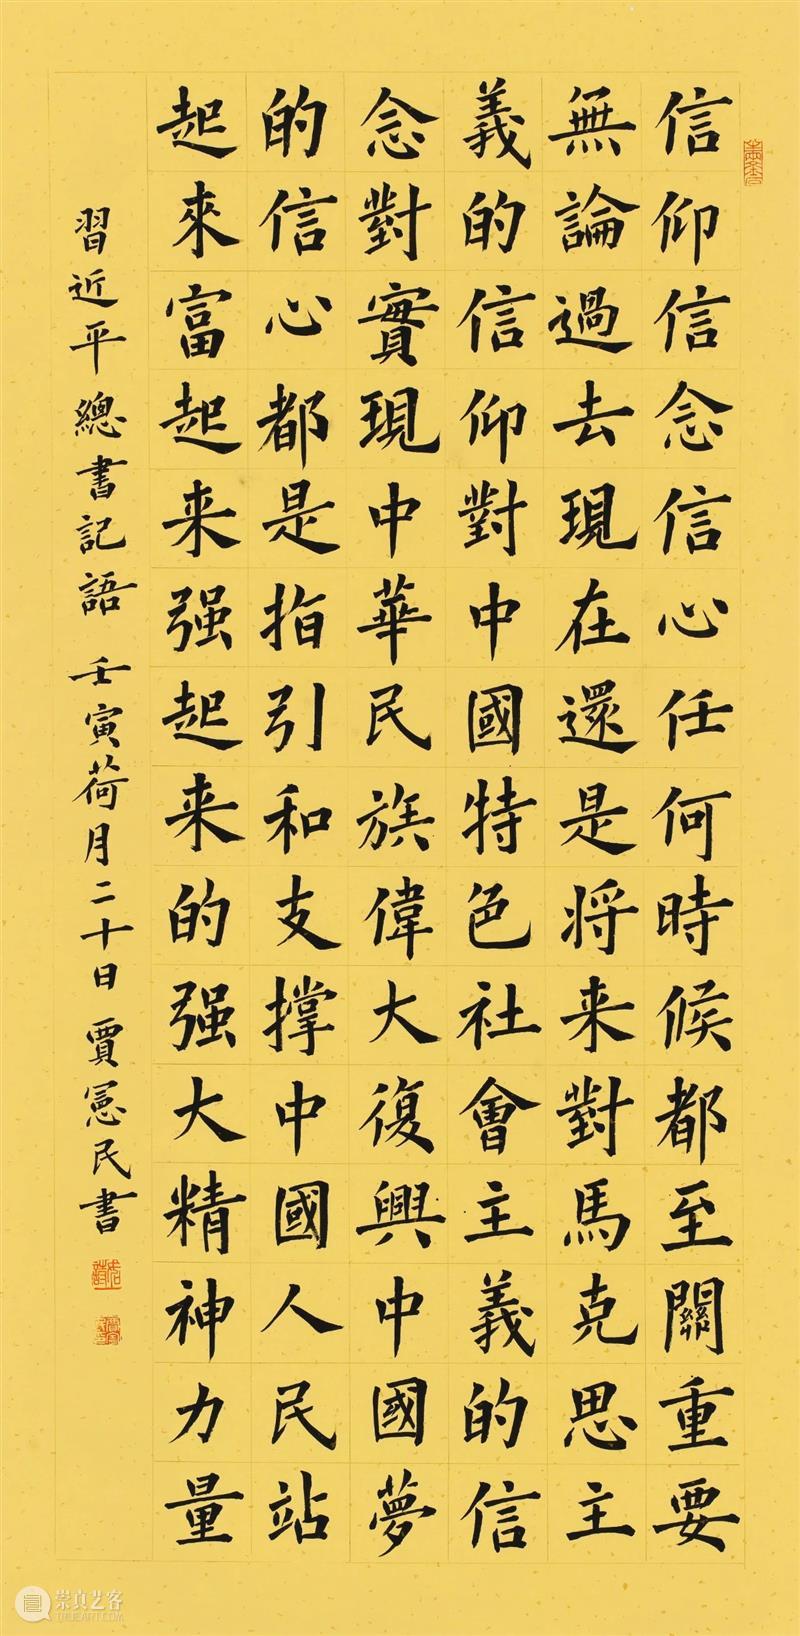 信仰信念信心任何時候都至關重要
無論過去現在還是將来對馬克思主
義的信仰對中國特色社會主義的信
念對實現中華民族偉大復興中國夢
的信心都是指引和支撑中國人民站
起來富起来强起来的强大精神力量
習近平總書記語 壬寅荷月二十日 賈憲民書
崇真艺客